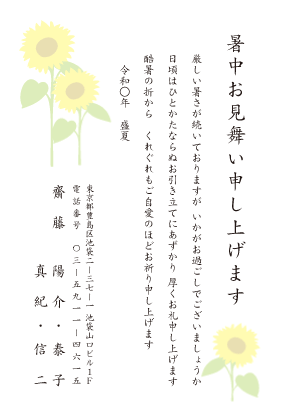 暑中お見舞い申し上げます
厳しい暑さが続いておりますが いかがお過ごしでございましょうか
日頃はひとかたならぬお引き立てにあずかり 厚くお礼申し上げます
酷暑の折から くれぐれもご自愛のほどお祈り申し上げます
令和〇年 盛夏
東京都豊島区池袋二ー三七ー一 池袋山口ビル１Ｆ
電話番号 〇三ー五九一一ー四六一五
齋藤 陽介・泰子
真紀・信二